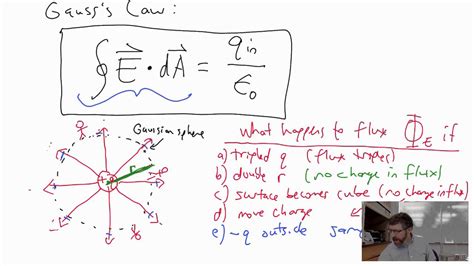 Gauss's Law:
∮ E⃗ · dA⃗ = q_in / ε₀
Gaussian sphere
r
What happens to flux Φ_E if
a) tripled q (flux triples)
b) double r (no change in flux)
c) surface becomes cube (no change in flux)
d) move charge
e) -q outside same